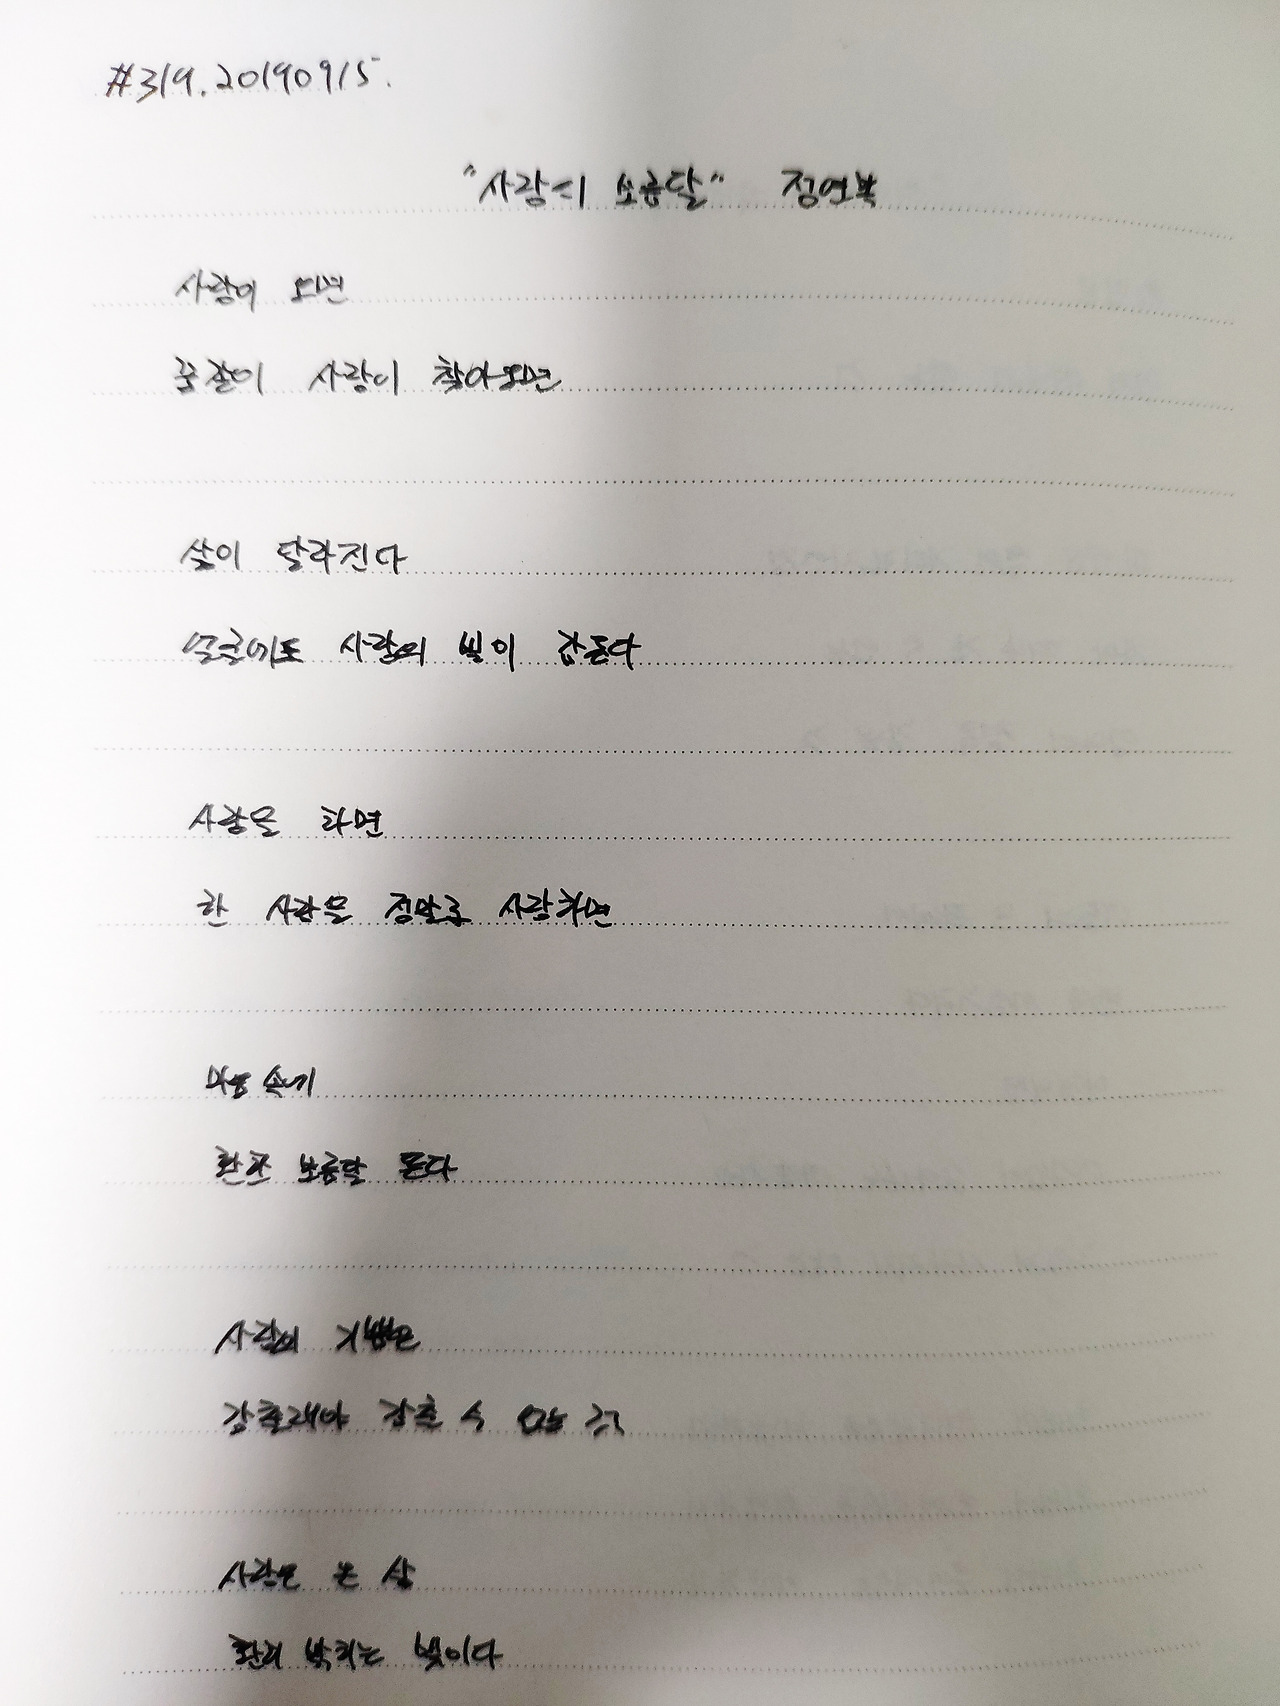 #319. 20190915.
"사랑의 보름달" 정연복
사랑이 오면
꿈같이 사랑이 찾아오면
삶이 달라진다
얼굴에도 사랑의 빛이 감돈다
사랑을 하면
한 사람을 정말로 사랑하면
마음 속에
환한 보름달 뜬다
사랑의 기쁨은
감추래야 감출 수 없는 것
사랑은 온 삶
환히 밝히는 빛이다